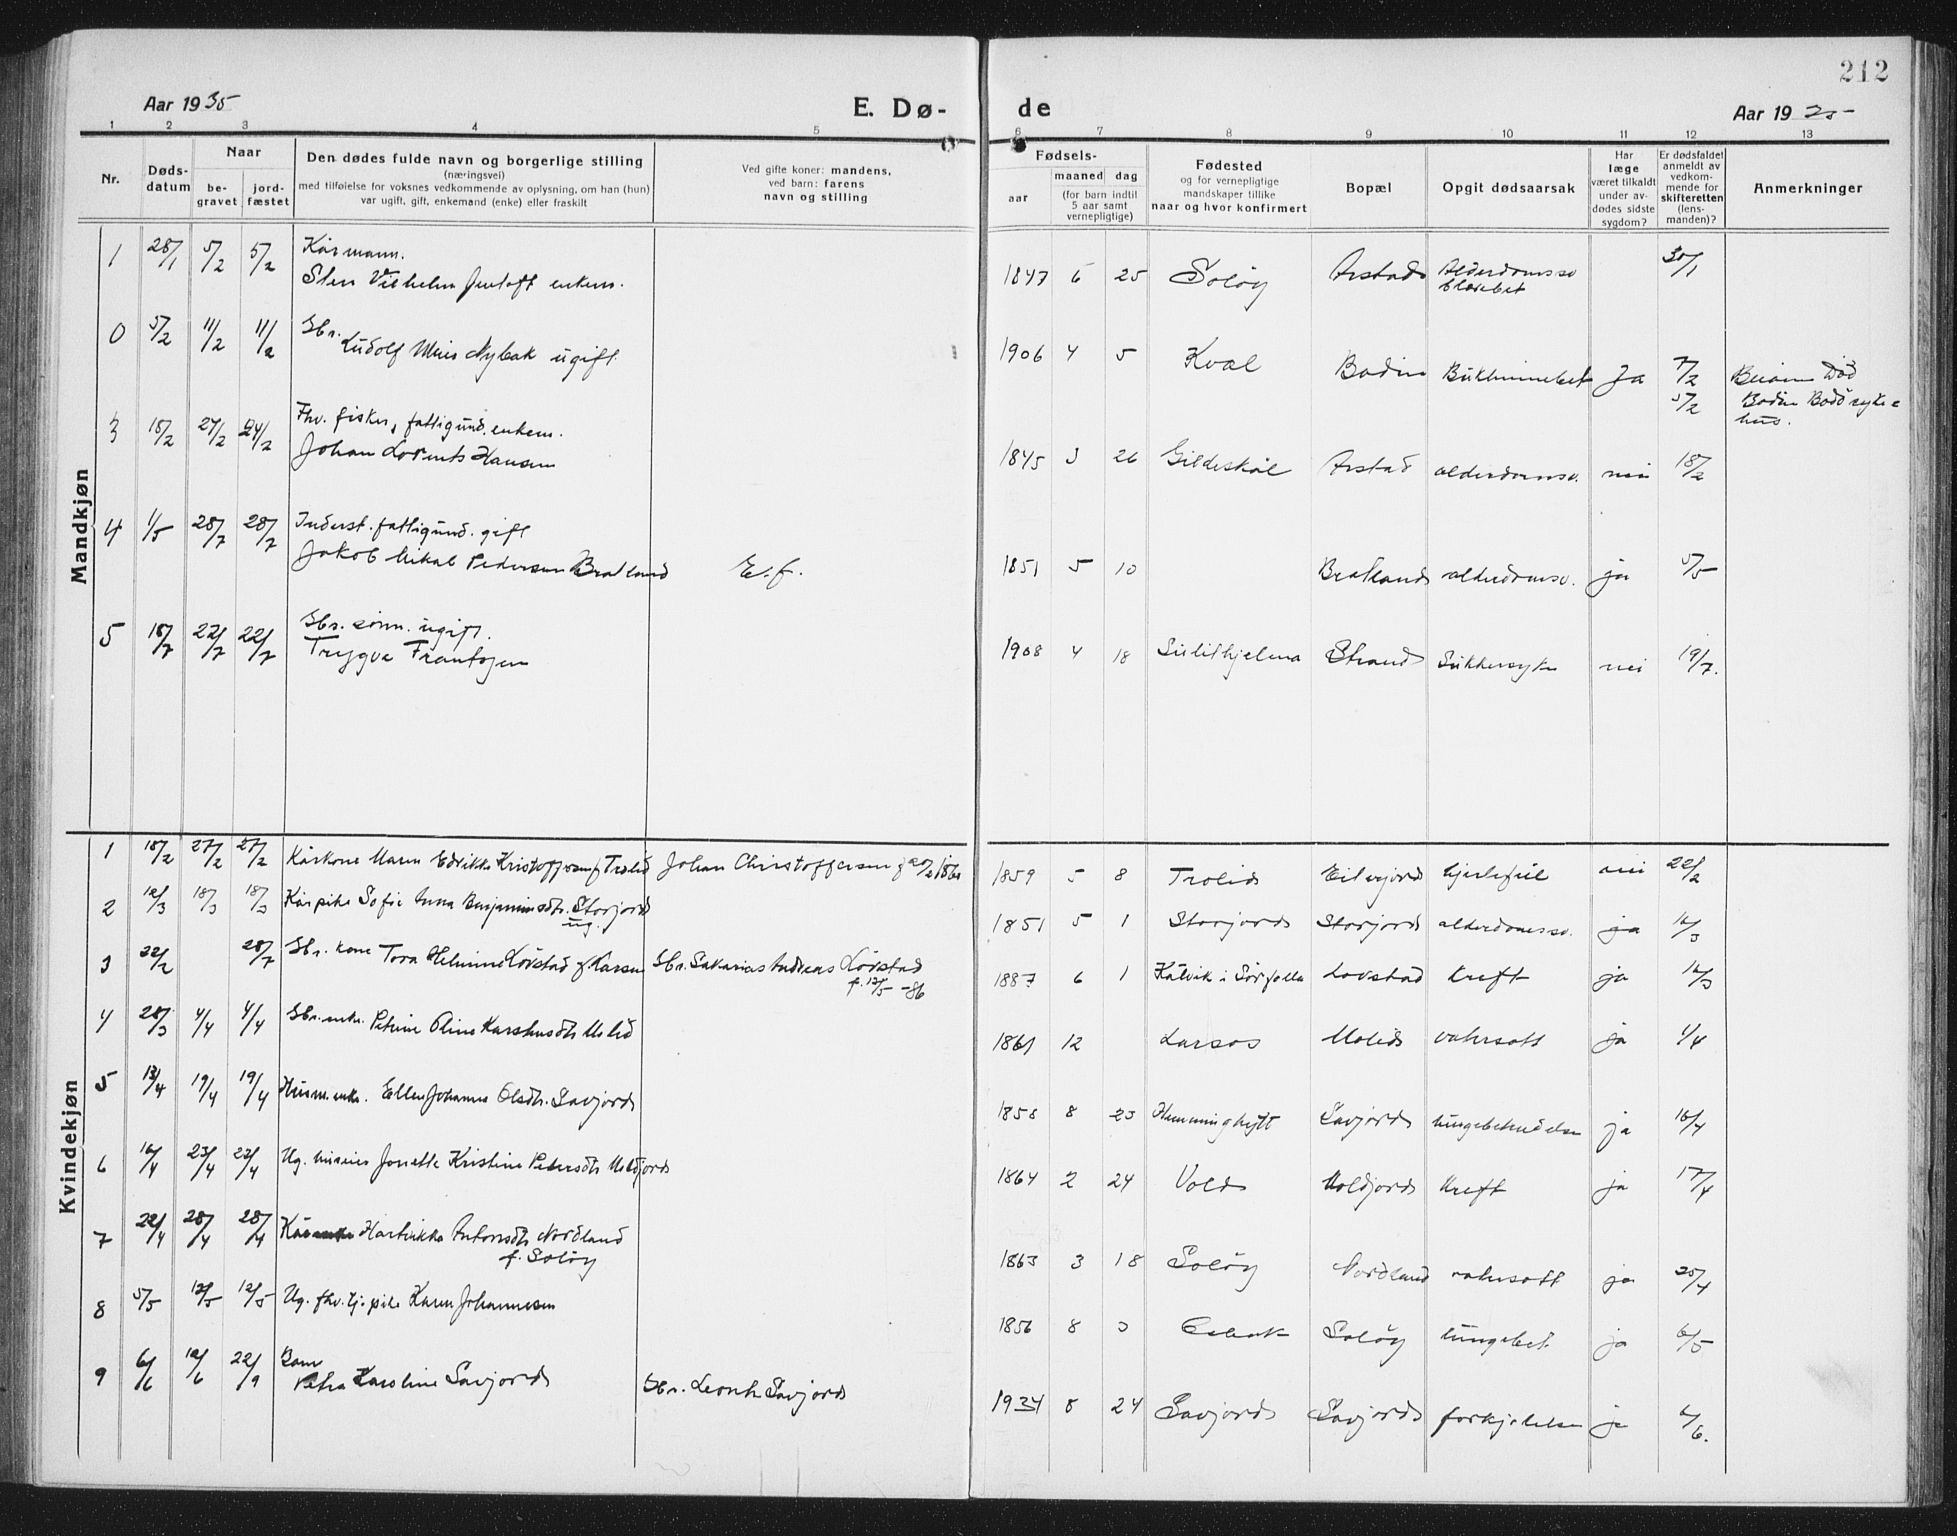 212
Aar 1935
E. Dø-
de
Aar 19
1 2 3 4 5 6 7 8 9 10 11 12 13
Nr.
Døds-
datum
Naar
be-
gravet
jord-
fæstet
Den dødes fulde navn og borgerlige stilling
(næringsvei)
med tilføielse for voksnes vedkommende av oplysning, om han (hun)
var ugift, gift, enkemand (enke) eller fraskilt
Ved gifte koner: mandens,
ved barn: farens
navn og stilling
Fødsels-
aar
maaned dag
(for barn indtil
5 aar samt
vernepligtige)
Fødested
og for vernepligtige
mandskaper tillike
naar og hvor konfirmert
Bopæl
Opgit dødsaarsak
Har
læge
været tilkaldt
under av-
dødes sidste
sygdom?
Er dødsfaldet
anmeldt av
vedkom-
mende for
skifteretten
(lens-
manden)?
Anmerkninger
Mandkjøn
1 28/1 5/2 5/2 Kårmann.
Sten Vilhelm Jentoft enkem. 1847 6 25 Soløy Arstad Alderdomssv 30/1
0 5/2 11/2 11/2 Gbr.
Ludolf Nybak ugift. 1906 4 5 Kval Bodin ja 7/2 Beiarn Død
5/2 Bodin Bodø syke=
hus.
3 18/2 24/2 24/2 Fhv. fisker, fattigund. enkem.
Johan Lorents Hansen 1845 3 26 Gildeskål Arstad alderdomsv. nei 18/2
4 1/5 28/7 28/7 Inderst. fattigund. gift
Jakob Mikal Pedersen Bratland E. f. 1851 5 10 Bratland alderdomsv. ja 5/5
5 18/7 22/7 22/7 Gbr. sønn. ugift.
Trygve Frantzen 1908 4 18 Sulithjelma Strand Sukkersyke nei 19/7.
Kvindekjøn
1 18/2 27/2 27/2 Kårkone Maren Edrikke Kristoffersen f Trolid Johan Christoffersen 1859 5 8 Trolid Eilevjord hjertefeil nei 22/2
2 12/3 18/3 18/3 Kårpike Sofie Anna Benjaminsdtr. Storjord
ug. 1851 5 1 Storjord Storjord alderdomssv. ja 16/3
3 22/2 28/7 Gbr. kone Tora Helmine Lovstad f Larsen Gbr. Sakarias Andreas Lovstad
f. 12/5 -86 1887 6 1 Kålvik i Sørfolla Lovstad Kreft ja 16/3
4 28/3 4/4 4/4 Gbr. enke. Petrine Oline Moled 1861 12 Larsos Moled vatersott ja 1/4
5 13/4 19/4 19/4 Husm. enke. Ellen Johanna Olsdtr. Savjord 1858 8 23 Savjord lungebetendelse ja 16/4
6 16/4 23/4 23/4 Ug. Jonette Kristine Petersdtr Moldjord 1864 2 24 Vold Moldjord Kreft ja 17/4
7 22/4 28/4 28/4 Hartvikka Antonsdtr Nordland
f. Soløy 1863 3 18 Soløy Nordland vatersott ja 25/4
8 5/5 12/5 12/5 Ug. fhv. tj. pike Karen Johannesen 1856 8 3 Soløy lungebet. ja 6/5
9 6/6 12/6 22/9 Barn
Petra Karoline Savjord Gbr. Leonh. Savjord 1934 8 24 Savjord Savjord forkjølelse ja 6/6.